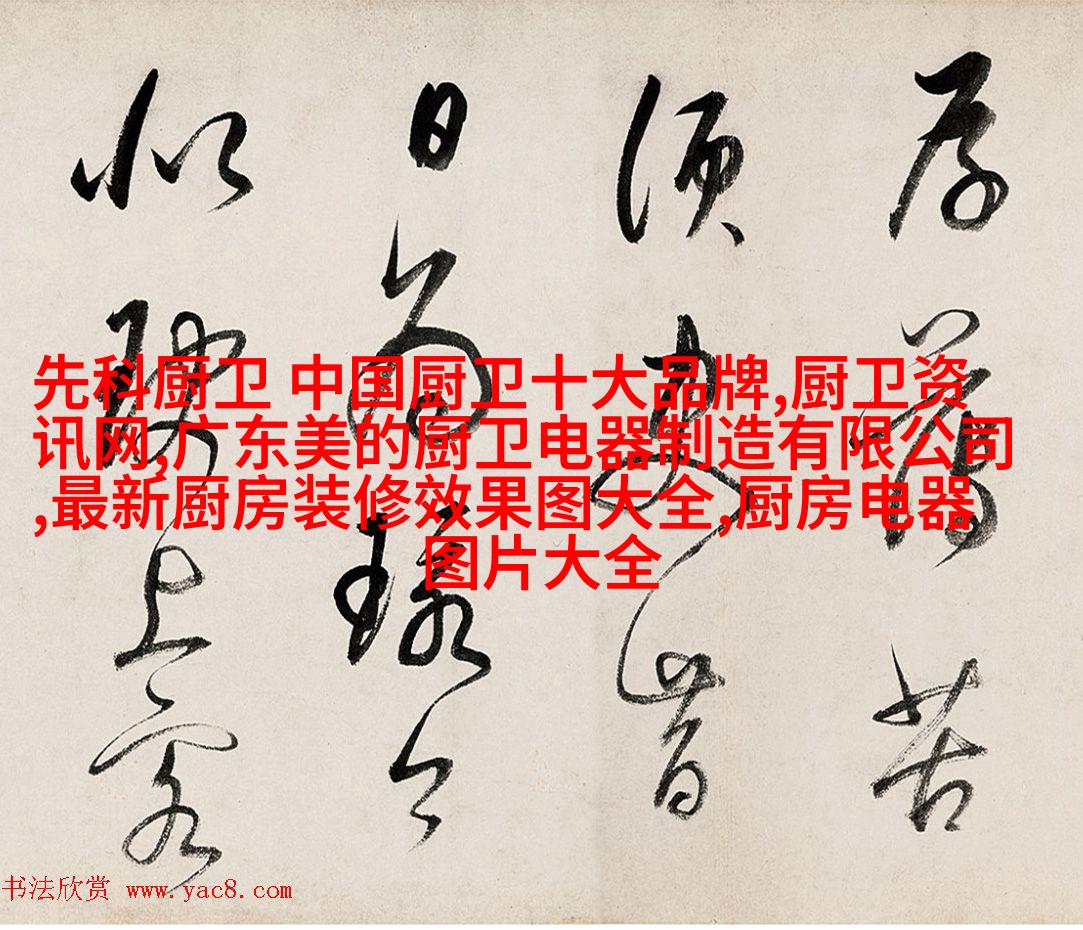 苦
须臾昔
日
上客
先科厨卫 中国厨卫十大品牌,厨卫资
讯网,广东美的厨卫电器制造有限公司
,最新厨房装修效果图大全,厨房电器
图片大全
书法欣赏 www.yac8.com